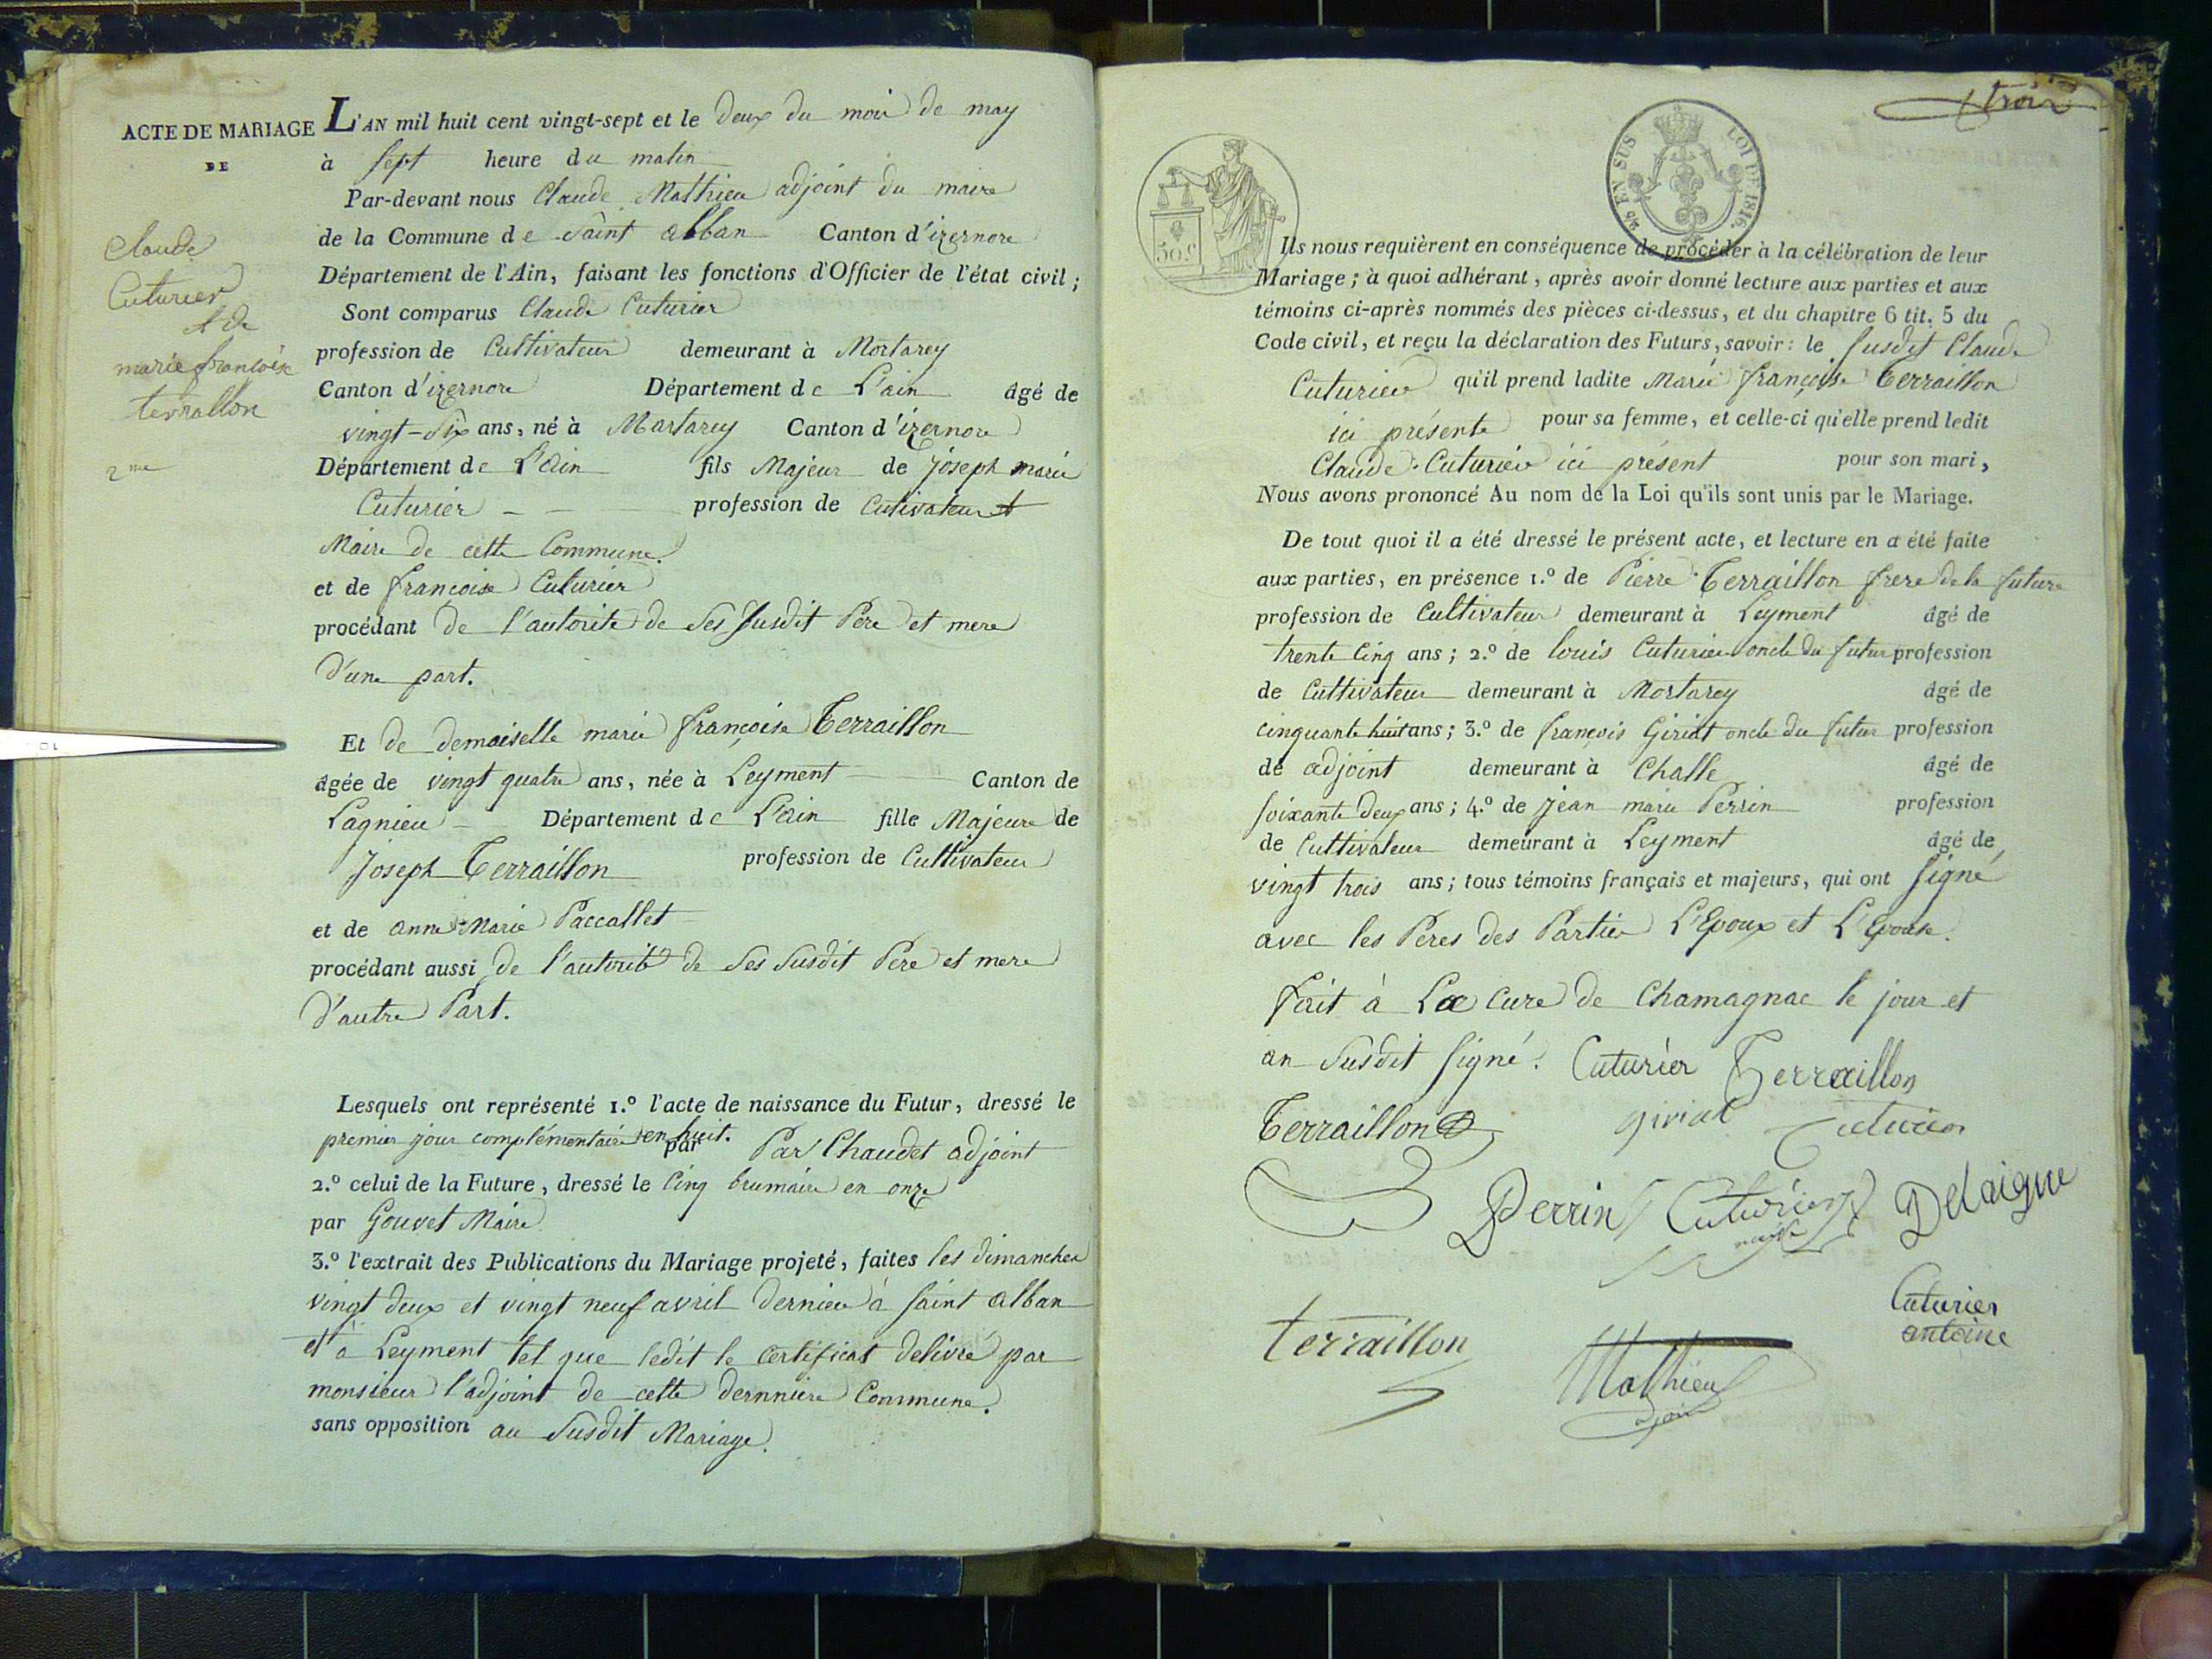 ACTE DE MARIAGE
DE
Claude
Cuturier
et de
marie francoise
terrallon
2me
L'AN mil huit cent vingt-sept et le deux du mois de may
à sept heure du matin
Par-devant nous Claude Mathieu adjoint du maire
de la Commune de saint alban Canton d'izernore
Département de l'Ain, faisant les fonctions d'Officier de l'état civil ;
Sont comparus Claude Cuturier
profession de Cultivateur demeurant à Mortarey
Canton d'izernore Département de L'ain âgé de
vingt-six ans, né à Mortarey Canton d'izernore
Département de L'ain fils Majeur de joseph marie
Cuturier profession de Cutivateur et
Maire de cette Commune.
et de francoise Cuturier
procédant de l'autorite de ses susdit Pere et mere
d'une part.
Et de demoiselle marie françoise Terraillon
âgée de vingt quatre ans, née à Leyment Canton de
Lagnieu Département de L'ain fille Majeure de
joseph Terraillon profession de Cultivateur
et de anne Marie Paccallet
procédant aussi de l'autorité de ses susdit Pere et mere
d'autre Part.
Lesquels ont représenté 1.º l'acte de naissance du Futur, dressé le
premier jour complémentaire en huit.
par Par Chaudet adjoint
2.º celui de la Future, dressé le Cinq brumaire en onze
par Gouvet Maire
3.º l'extrait des Publications du Mariage projeté, faites les dimanches
vingt deux et vingt neuf avril dernier à saint alban
et à Leyment tel que ledit le certificat delivré par
monsieur l'adjoint de cette dernniere Commune.
sans opposition au susdit Mariage.
trois
2/5 EN SUS LOI DE 1816.
50 c
Ils nous requièrent en conséquence de procéder à la célébration de leur
Mariage ; à quoi adhérant, après avoir donné lecture aux parties et aux
témoins ci-après nommés des pièces ci-dessus, et du chapitre 6 tit. 5 du
Code civil, et reçu la déclaration des Futurs, savoir : le susdit Claude
Cuturier qu'il prend ladite Marie françoise Terraillon
ici présente pour sa femme, et celle-ci qu'elle prend ledit
Claude Cuturier ici présent pour son mari,
Nous avons prononcé Au nom de la Loi qu'ils sont unis par le Mariage.
De tout quoi il a été dressé le présent acte, et lecture en a été faite
aux parties, en présence 1.º de Pierre Terraillon frere de la future
profession de Cultivateur demeurant à Leyment âgé de
trente Cinq ans ; 2.º de louis Cuturier oncle du futur profession
de Cultivateur demeurant à Mortarey âgé de
cinquante huit ans ; 3.º de françois Giriat oncle du futur profession
de adjoint demeurant à Challe âgé de
soixante deux ans ; 4.º de jean marie Perrin profession
de Cultivateur demeurant à Leyment âgé de
vingt trois ans ; tous témoins français et majeurs, qui ont signé
avec les Peres des Parties L'Epoux et L'Epouse.
fait à La Cure de Chamagnac le jour et
an susdit signé. Cuturier Terraillon
Terraillon giriat Cuturier
Perrin Cuturier maire Delaigue
Cuturier
antoine
terraillon Mathieu
adjoint